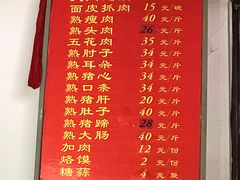 面皮抓肉 15 元/碗
熟瘦肉 40 元/斤
熟头肉 26 元/斤
五花肉 35 元/斤
熟肘子 34 元/斤
熟耳朵 34 元/斤
熟猪心 34 元/斤
熟口条 34 元/斤
熟猪肝 20 元/斤
熟肚子 40 元/斤
熟猪蹄 28 元/斤
熟大肠 40 元/斤
加肉 12 元/份
烙馍 2 元/份
糖蒜 4 元/袋